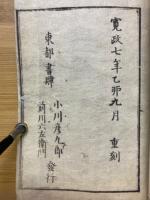 寛政七年乙卯九月 重刻
東都書肆
小川彦九郎
前川六左衛門 發行